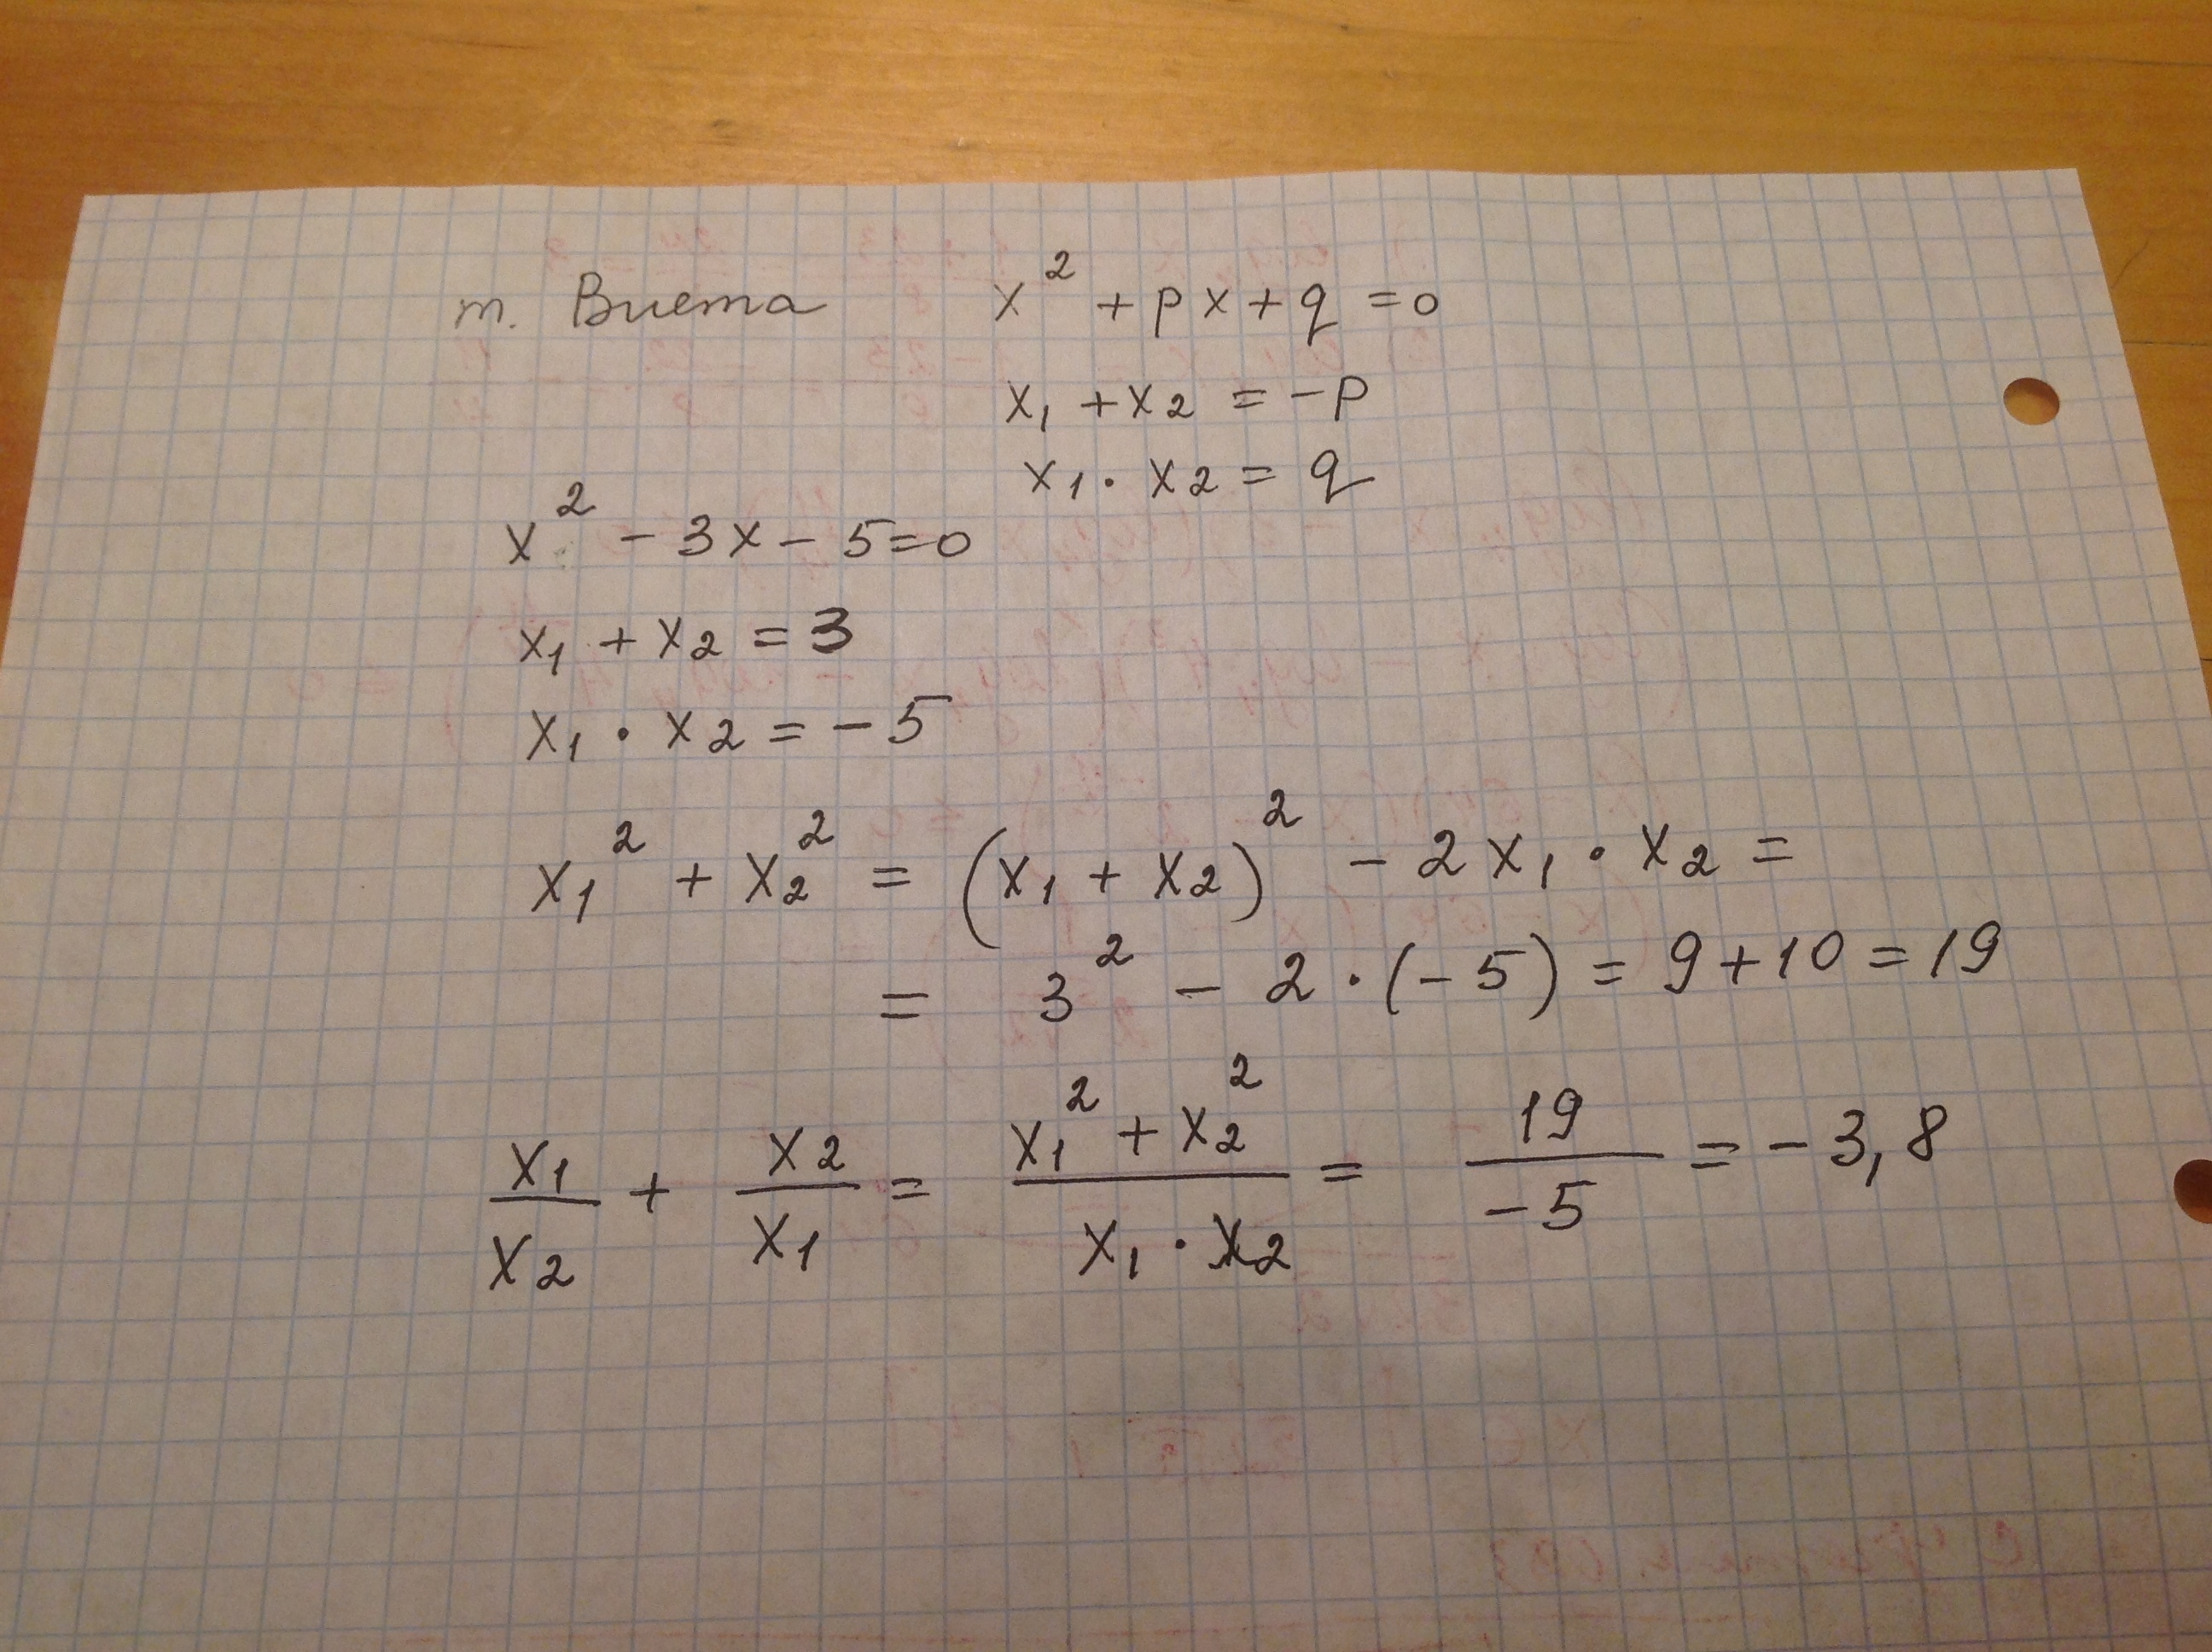 т. Виета x² + px + q = 0
x₁ + x₂ = -p
x₁ · x₂ = q
x² - 3x - 5 = 0
x₁ + x₂ = 3
x₁ · x₂ = -5
x₁² + x₂² = (x₁ + x₂)² - 2x₁ · x₂ =
= 3² - 2 · (-5) = 9 + 10 = 19
x₁/x₂ + x₂/x₁ = (x₁² + x₂²)/(x₁ · x₂) = 19/-5 = -3,8